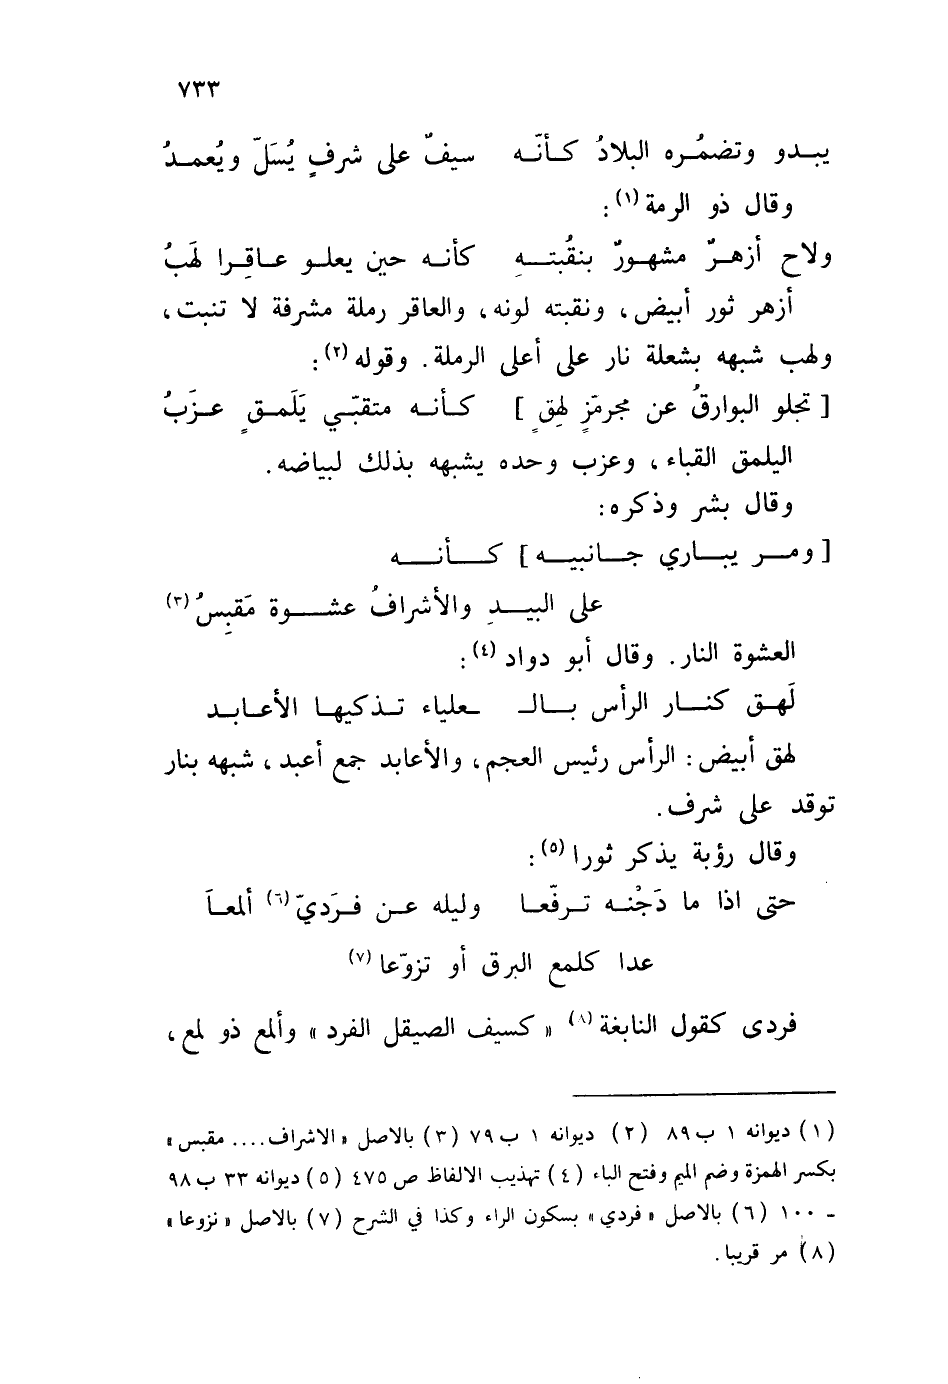 ٧٣٣
يبدو وتضمُره البلادُ كأنّه سيفٌ على شرفٍ يُسَلّ ويُعمدُ
وقال ذو الرمة (١) :
ولاح أزهرُ مشهورٌ بنقُبتهِ كأنه حين يعلو عاقِرا لهَبُ
أزهر ثور أبيض، ونقبته لونه، والعاقر رملة مشرفة لا تنبت،
ولهب شبهه بشعلة نار على أعلى الرملة. وقوله (٢) :
[ تجلو البوارقُ عن مجرمّزٍ لهِقٍ ] كأنه متقبّي يَلَمقٍ عزَبُ
اليلمق القباء، وعزب وحده يشبهه بذلك لبياضه.
وقال بشر وذكره:
[ ومر يباري جانبيه ] كأنه
على البيدِ والأشرافُ عشوة مَقبِسُ (٣)
العشوة النار. وقال أبو دواد (٤) :
لَهق كنار الرأس بالـ ـعلياء تذكيها الأعابد
لهق أبيض: الرأس رئيس العجم، والأعابد جمع أعبد، شبهه بنار
توقد على شرف.
وقال رؤبة يذكر ثورا (٥) :
حتى اذا ما دَجْنه ترفّعا وليله عن فرَديّ (٦) ألمعاَ
عدا كلمع البرق أو تزوّعا (٧)
فردى كقول النابغة (٨) « كسيف الصيقل الفرد » وألمع ذو لمع،
(١) ديوانه ١ ب ٨٩ (٢) ديوانه ١ ب ٧٩ (٣) بالاصل « الاشراف.... مقبس »
بكسر الهمزة وضم الميم وفتح الباء (٤) تهذيب الالفاظ ص ٤٧٥ (٥) ديوانه ٣٣ ب ٩٨
ـ ١٠٠ (٦) بالاصل « فردي » بسكون الراء وكذا في الشرح (٧) بالاصل « نزوعا »
(٨) مر قريبا.